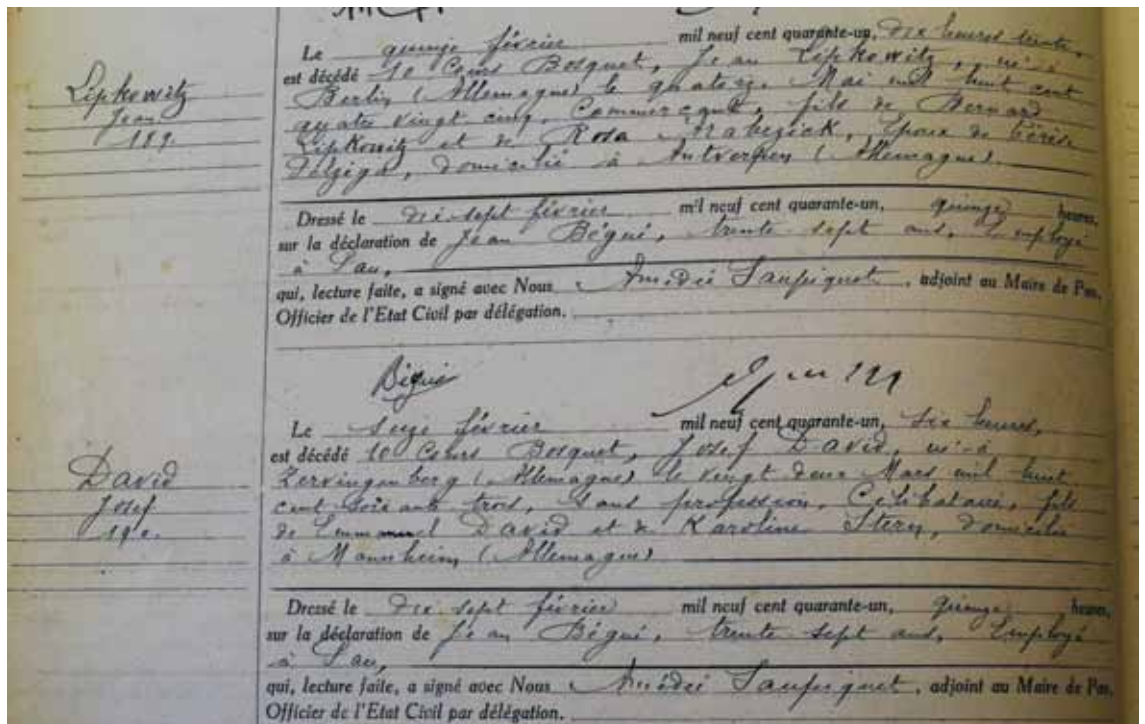 Lipkowitz
Jean
189.
Le quinze février mil neuf cent quarante-un, dix heures trente,
est décédé 10 Cours Bosquet, Jean Lipkowitz, né à
Berlin (Allemagne) le quatorze Mai mil huit cent
quatre vingt cinq, Commerçant, fils de Bernard
Lipkowitz et de Rosa, Epoux de
domicilié à Antverpen (Allemagne).
Dressé le dix-sept février mil neuf cent quarante-un, quinze heures,
sur la déclaration de Jean Bégué, trente sept ans, employé
à Pau,
qui, lecture faite, a signé avec Nous Amédée Saupiquet, adjoint au Maire de Pau,
Officier de l'Etat Civil par délégation.
Bégué
David
Josef
190.
Le seize février mil neuf cent quarante-un, six heures,
est décédé 10 Cours Bosquet, Josef David, né à
(Allemagne) le vingt deux Mars mil huit
cent soixante trois, sans profession, Célibataire, fils
de Emmanuel David et de Karoline Stern, domicilié
à Mannheim (Allemagne)
Dressé le dix sept février mil neuf cent quarante-un, quinze heures,
sur la déclaration de Jean Bégué, trente sept ans, Employé
à Pau,
qui, lecture faite, a signé avec Nous Amédée Saupiquet, adjoint au Maire de Pau,
Officier de l'Etat Civil par délégation.